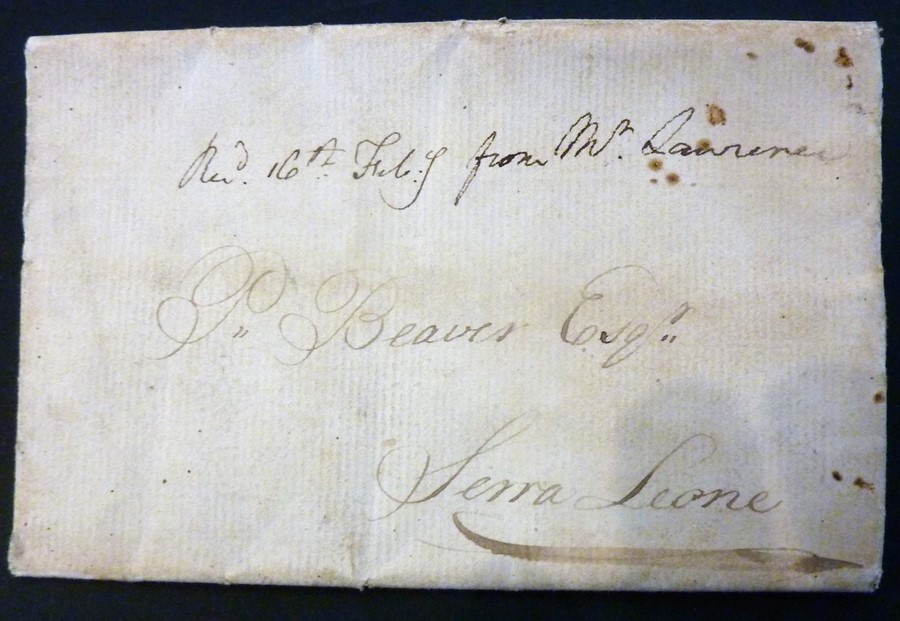 Rec'd. 16th Feb:y from Mr. Lawrence
P" Beaver Esqr"
Serra Leone